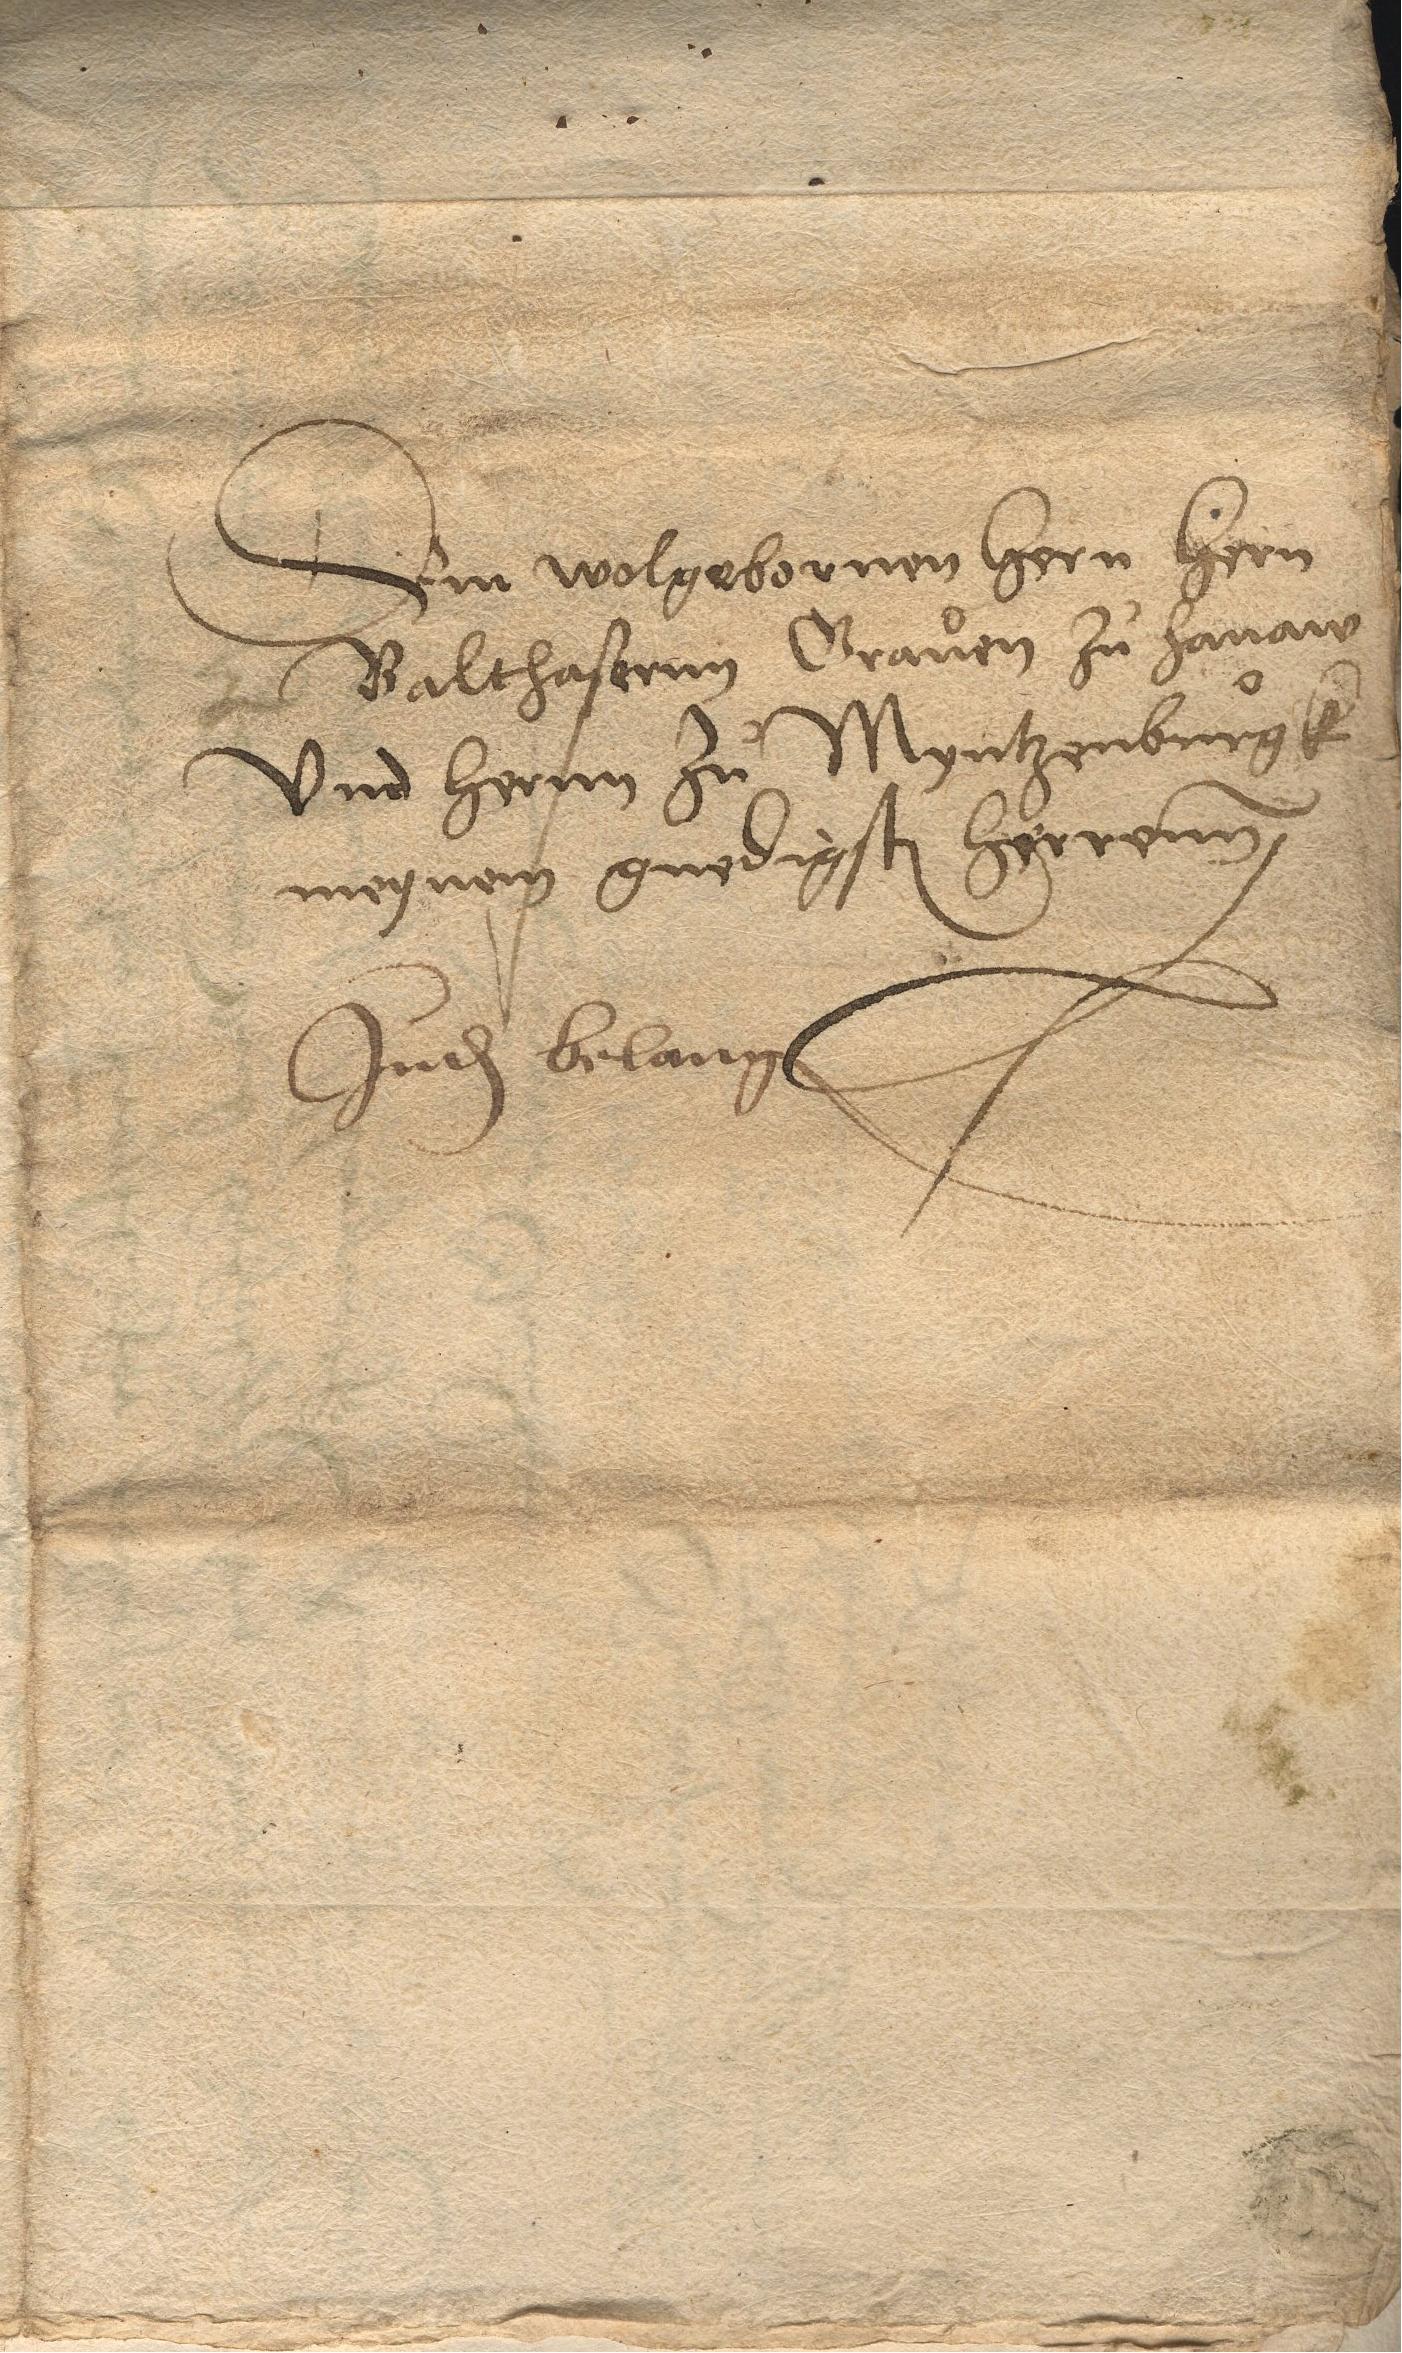 Dem wolgebornen hern hern
Balthasernn Graven zů hanaw
Vnd hernn zů Myntzenburgk
meynem gnedigst herrenn
Judn belang